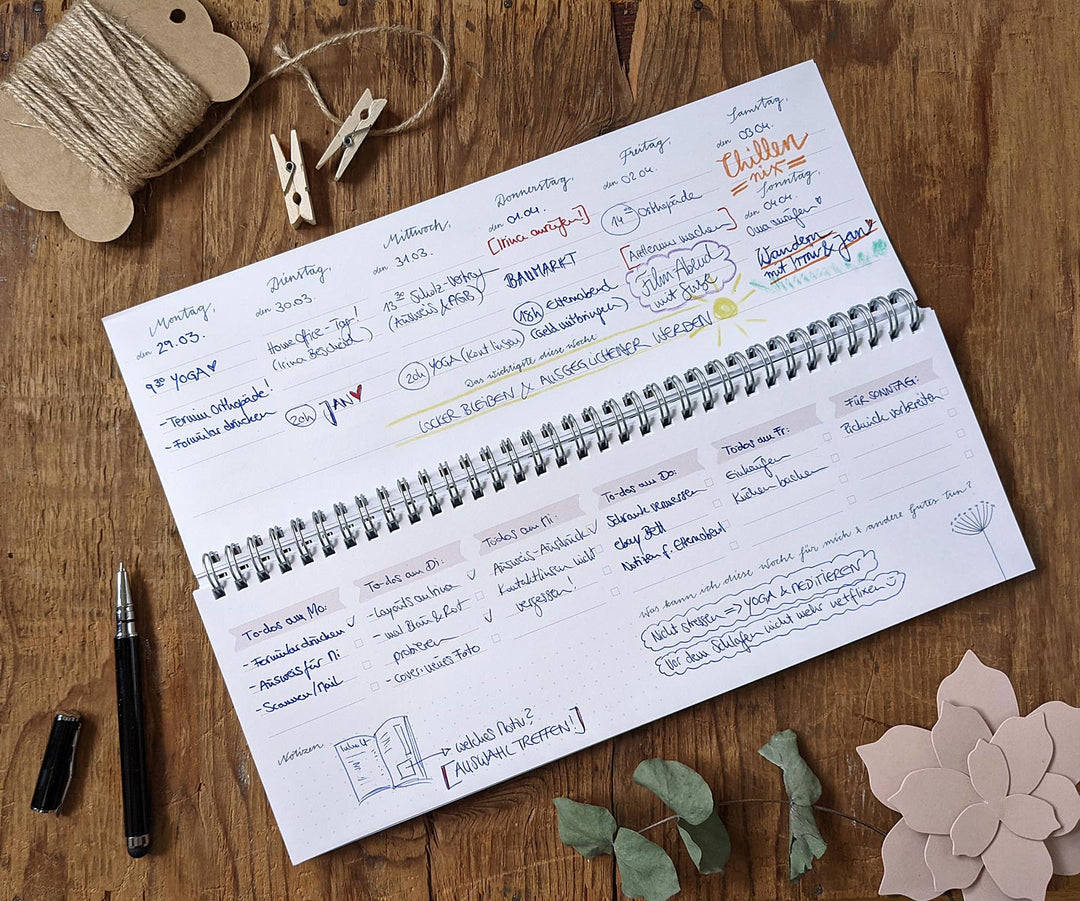 Montag,
den 29.03.
9:30 YOGA ♥
- Termin Orthopäde!
- Formular drucken
Dienstag,
den 30.03.
Home Office - Tag!
(Irina Bescheid)
20h JAN ♥
Mittwoch,
den 31.03.
13:30 Scholz-Vertrag
(Ausweis & AGB)
20h YOGA (Kontlinsen)
Donnerstag,
den 01.04.
[Irina anrufen!]
BAUMARKT
18h Elternabend
(Geld mitbringen)
Freitag,
den 02.04.
Orthopäde
machen]
Film Abend
mit Suse
Samstag,
den 03.04.
Chillen
= nix =
Sonntag,
den 04.04.
Oma anrufen ♥
Wandern
mit & Jan ♥
Das wichtigste diese Woche
LOCKER BLEIBEN & AUSGEGLICHENER WERDEN
To-dos am Mo:
- Formular drucken ✓
- Ausweis für Mi
- Scannen/Mail
To-dos am Di:
- Layouts an Irina ✓
- mal Blau & Rot
probieren ✓
- cover: neues Foto
To-dos am Mi:
Ausweis-Ausdruck ✓
Kontaktlinsen nicht
vergessen!
To-dos am Do:
Schrank vermessen
ebay Bett
Notizen f. Elternabend
To-dos am Fr:
Einkaufen
Kuchen backen
FÜR SONNTAG:
Picknick vorbereiten
Was kann ich diese Woche für mich & andere gutes tun?
Nicht stressen ⇒ YOGA & MEDITIEREN
Vor dem Schlafen nicht mehr netflixen
Notizen
→ welches Motiv?
[AUSWAHL TREFFEN!]